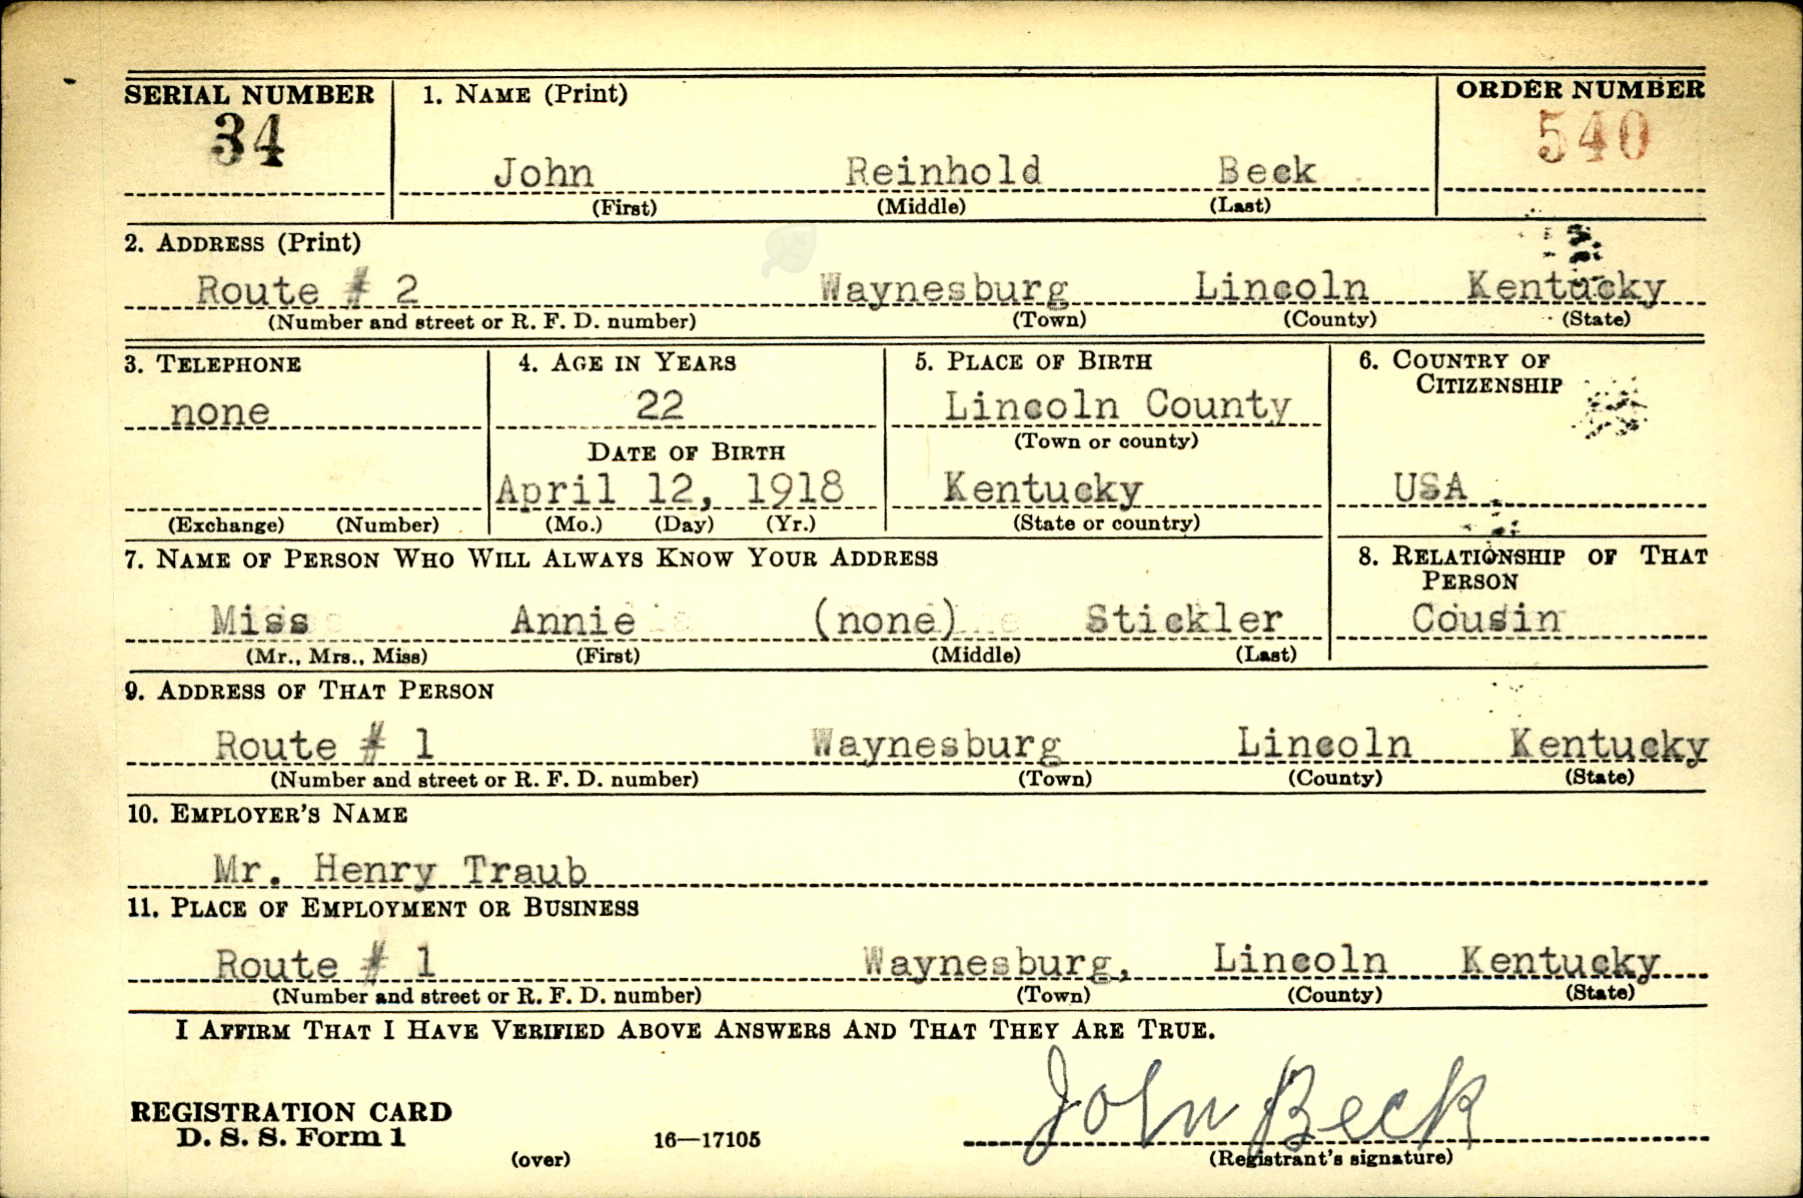 SERIAL NUMBER 1. NAME (Print) ORDER NUMBER
34 540
John Reinhold Beck
(First) (Middle) (Last)
2. ADDRESS (Print)
Route # 2 Waynesburg Lincoln Kentucky
(Number and street or R. F. D. number) (Town) (County) (State)
3. TELEPHONE 4. AGE IN YEARS 5. PLACE OF BIRTH 6. COUNTRY OF
CITIZENSHIP
none 22 Lincoln County
(Town or county)
DATE OF BIRTH
April 12, 1918 Kentucky USA
(Exchange) (Number) (Mo.) (Day) (Yr.) (State or country)
7. NAME OF PERSON WHO WILL ALWAYS KNOW YOUR ADDRESS 8. RELATIONSHIP OF THAT
PERSON
Miss Annie (none) Stickler Cousin
(Mr., Mrs., Miss) (First) (Middle) (Last)
9. ADDRESS OF THAT PERSON
Route # 1 Waynesburg Lincoln Kentucky
(Number and street or R. F. D. number) (Town) (County) (State)
10. EMPLOYER'S NAME
Mr. Henry Traub
11. PLACE OF EMPLOYMENT OR BUSINESS
Route # 1 Waynesburg, Lincoln Kentucky
(Number and street or R. F. D. number) (Town) (County) (State)
I AFFIRM THAT I HAVE VERIFIED ABOVE ANSWERS AND THAT THEY ARE TRUE.
John Beck
REGISTRATION CARD
D. S. S. Form 1 16—17105
(over) (Registrant's signature)